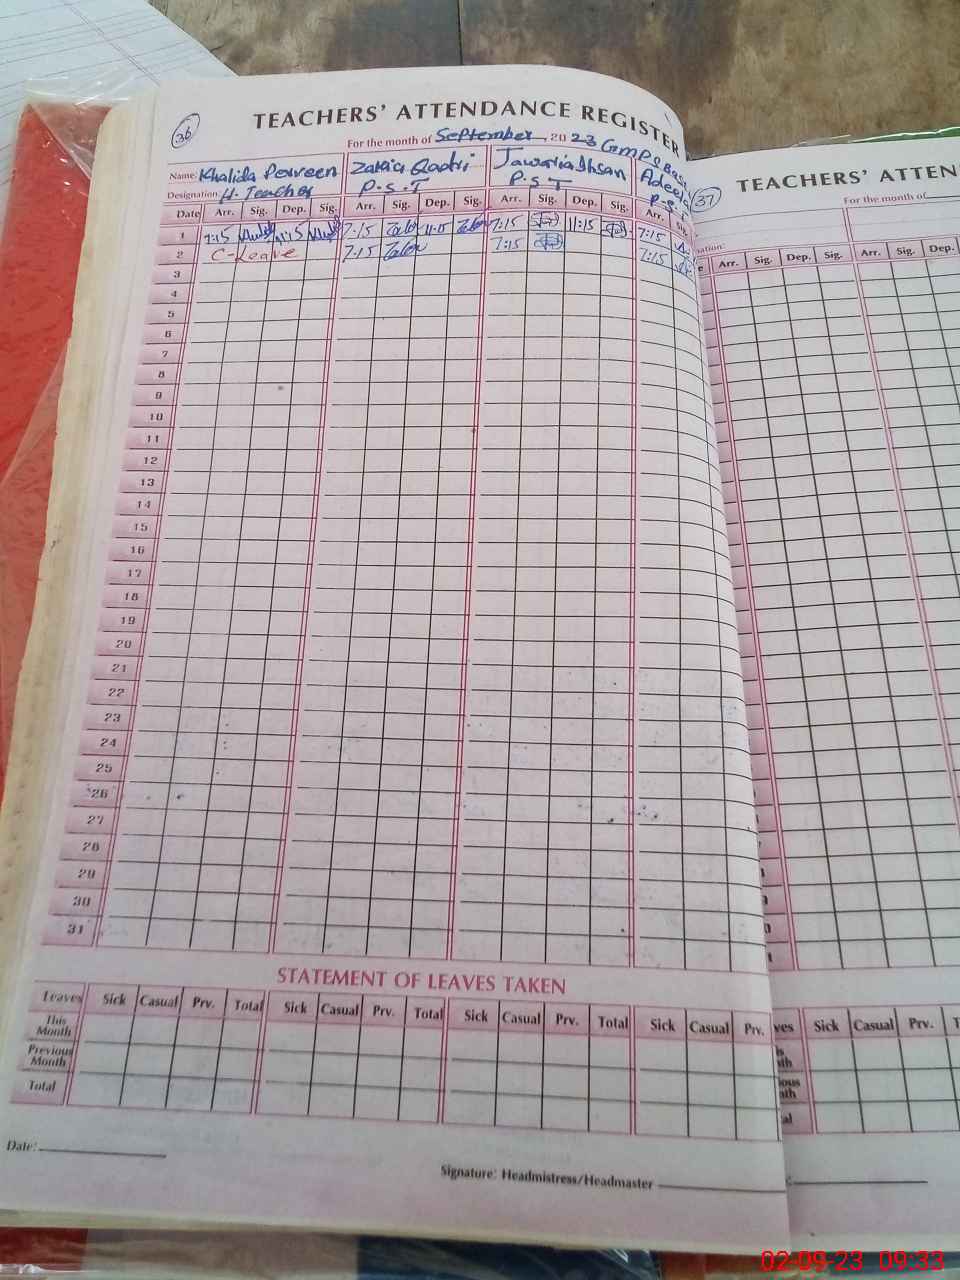 36
TEACHERS' ATTENDANCE REGISTER
For the month of September, 2023 GMPS
Name: Khalida Perveen Zakia Qadri Jawaria Ihsan Adeela
Designation: H. Teacher P.S.T P.S.T P.S.T
Date Arr. Sig. Dep. Sig. Arr. Sig. Dep. Sig. Arr. Sig. Dep. Sig. Arr. Sig.
1 7:15 11:15 7:15 11:15 7:15 11:15 7:15
2 C-Leave 7:15 7:15 7:15
3
4
5
6
7
8
9
10
11
12
13
14
15
16
17
18
19
20
21
22
23
24
25
26
27
28
29
30
31
STATEMENT OF LEAVES TAKEN
Leaves Sick Casual Prv. Total Sick Casual Prv. Total Sick Casual Prv. Total Sick Casual Prv.
This Month
Previous Month
Total
Date:
Signature: Headmistress/Headmaster
37
TEACHERS' ATTEN
For the month of
ation:
Arr. Sig. Dep. Sig. Arr. Sig. Dep.
ves Sick Casual Prv. T
is
nth
ious
nth
al
02-09-23 09:33